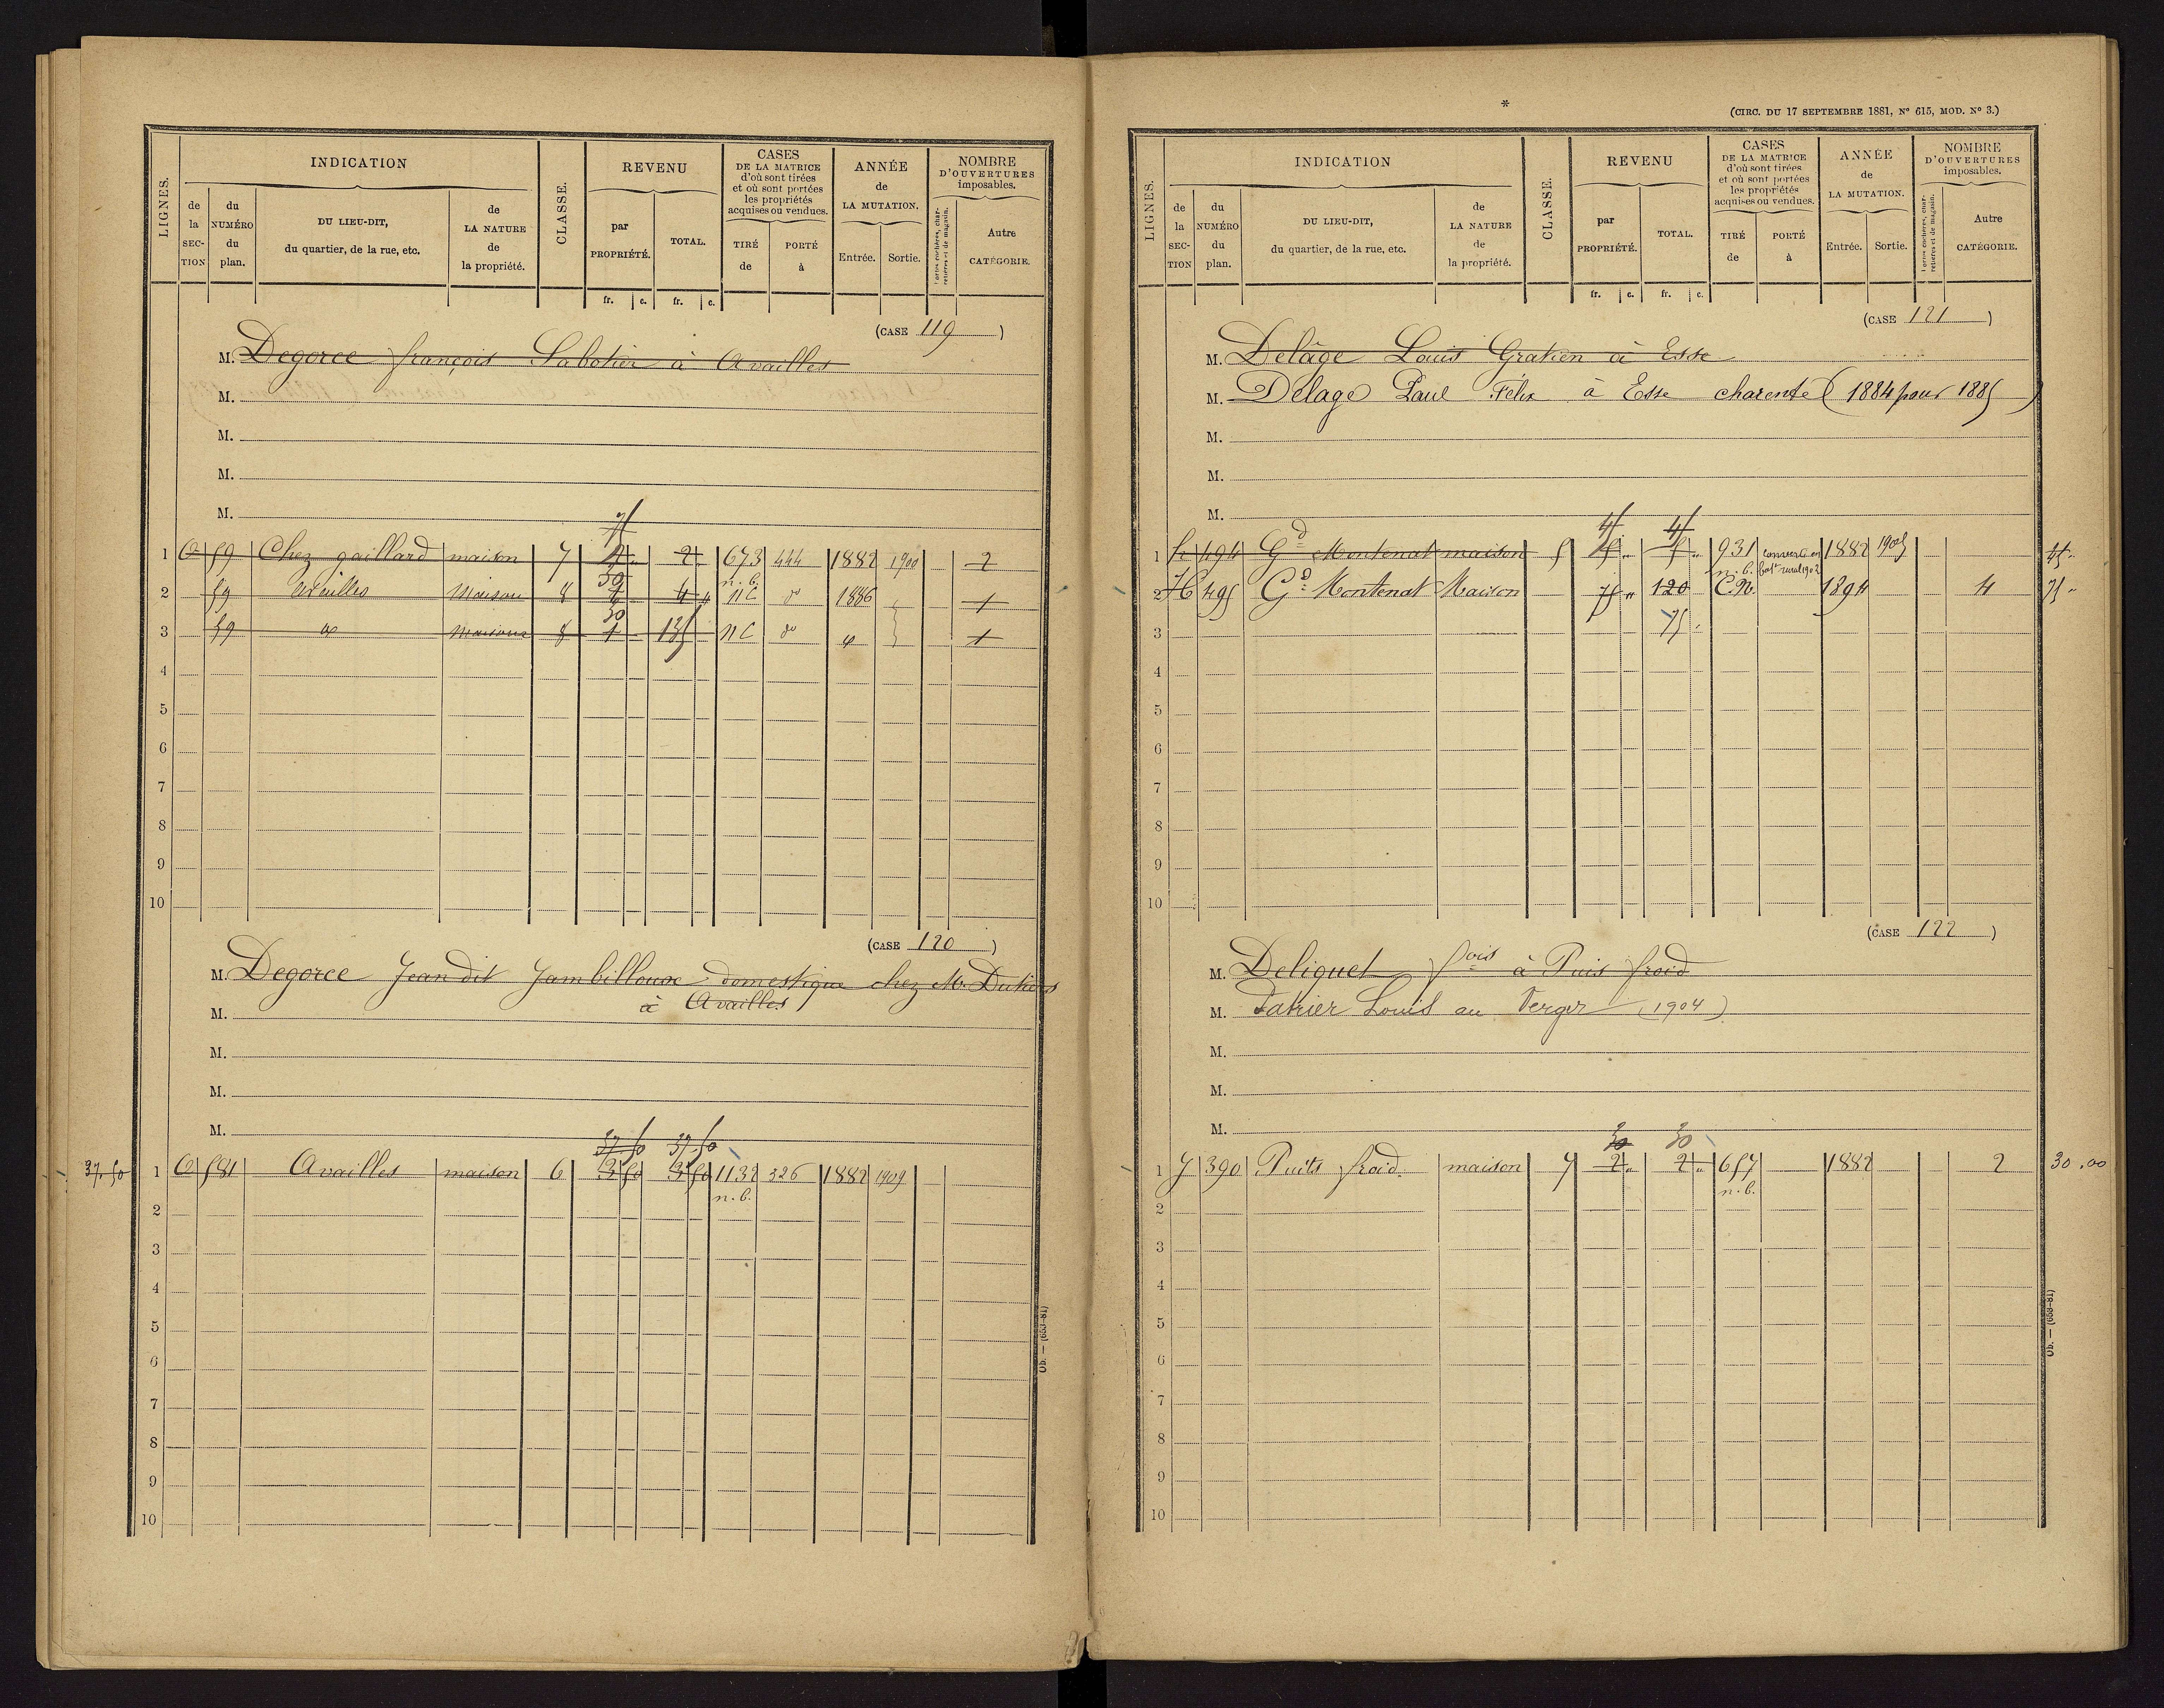 LIGNES.
INDICATION
de la SECTION
du NUMÉRO du plan.
DU LIEU-DIT, du quartier, de la rue, etc.
de LA NATURE de la propriété.
CLASSE.
REVENU
par PROPRIÉTÉ.
TOTAL.
fr. c. fr. c.
CASES DE LA MATRICE d'où sont tirées et où sont portées les propriétés acquises ou vendues.
TIRÉ de
PORTÉ à
ANNÉE de LA MUTATION.
Entrée. Sortie.
NOMBRE D'OUVERTURES imposables.
Portes cochères, charretières et de magasin.
Autre CATÉGORIE.
(CASE 119)
M. Degorce françois Sabotier à Availles
M.
M.
M.
M.
1 59 Chez gaillard maison 7 2 673 444 1882 1900 2
n. b.
2 59 Availles Maison 8 4 NC do 1886 1
3 59 Maison 8 1 135 NC do 1
4
5
6
7
8
9
10
(CASE 120)
M. Degorce Jean dit Jambilloux domestique chez M.
à Availles
M.
M.
M.
M.
37.50 37.50
37.50 1 581 Availles maison 6 3 50 3 50 1132 326 1882 1909
n. b.
2
3
4
5
6
7
8
9
10
Ob. — (653-81)
*
(CIRC. DU 17 SEPTEMBRE 1881, N° 615, MOD. N° 3.)
LIGNES.
INDICATION
de la SECTION
du NUMÉRO du plan.
DU LIEU-DIT, du quartier, de la rue, etc.
de LA NATURE de la propriété.
CLASSE.
REVENU
par PROPRIÉTÉ.
TOTAL.
fr. c. fr. c.
CASES DE LA MATRICE d'où sont tirées et où sont portées les propriétés acquises ou vendues.
TIRÉ de
PORTÉ à
ANNÉE de LA MUTATION.
Entrée. Sortie.
NOMBRE D'OUVERTURES imposables.
Portes cochères, charretières et de magasin.
Autre CATÉGORIE.
(CASE 121)
M. Delâge Louis Gratien à Esse
M. Delage Paul Félix à Esse charente (1884 pour 1885)
M.
M.
M.
45 45
1 h 494 Gd Montenat maison 5 931 converti en 1882 1905 45
n. b. bat. rural 1902
2 H 495 Gd Montenat Maison 75 120 C.N. 1894 4 75
3 75
4
5
6
7
8
9
10
(CASE 122)
M. Deliquet fois à Puis froid
M. Louis au Verger (1904)
M.
M.
M.
30 30
1 390 Puits froid maison 7 2 2 657 1882 2 30.00
n. b.
2
3
4
5
6
7
8
9
10
Ob. — (653-81)